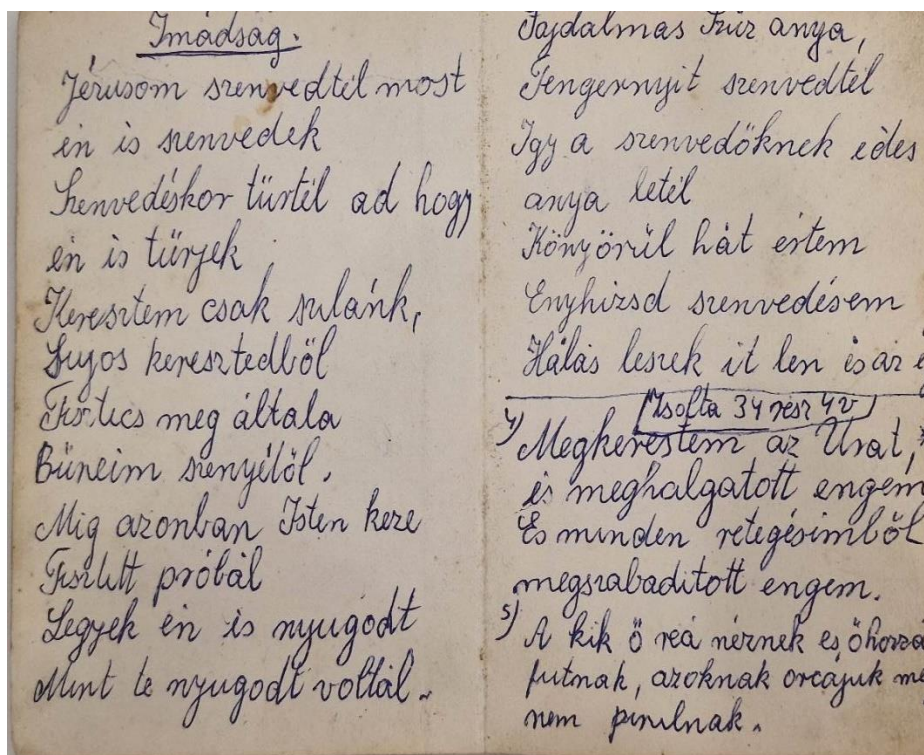 Imádság.
Jérusom szenvedtél most
én is szenvedek
Szenvedéskor türtél ad hogy
én is türjek
Keresztem csak sulánk,
Sujos keresztedből
Tisztics meg általa
Büneim szenyétől.
Mig azonban Isten keze
Tisztitt próbál
Legyek én is nyugodt
Mint te nyugodt voltál.
Fajdalmas Szüz anya,
Tengernyit szenvedtél
Igy a szenvedőknek édes
anya letél
Könyörül hát értem
Enyhizsd szenvedésem
Hálás leszek it len és az
Zsolta 34 resz 4v
4) Megkerestem az Urat,
és meghalgatott engem
És minden retegésimből
megszabaditott engem.
5) A kik ő reá néznek es, őhozzá
futnak, azoknak orcájuk me
nem pirulnak.